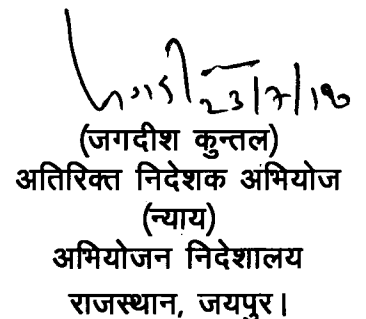 23/7/18
(जगदीश कुन्तल)
अतिरिक्त निदेशक अभियोज
(न्याय)
अभियोजन निदेशालय
राजस्थान, जयपुर।